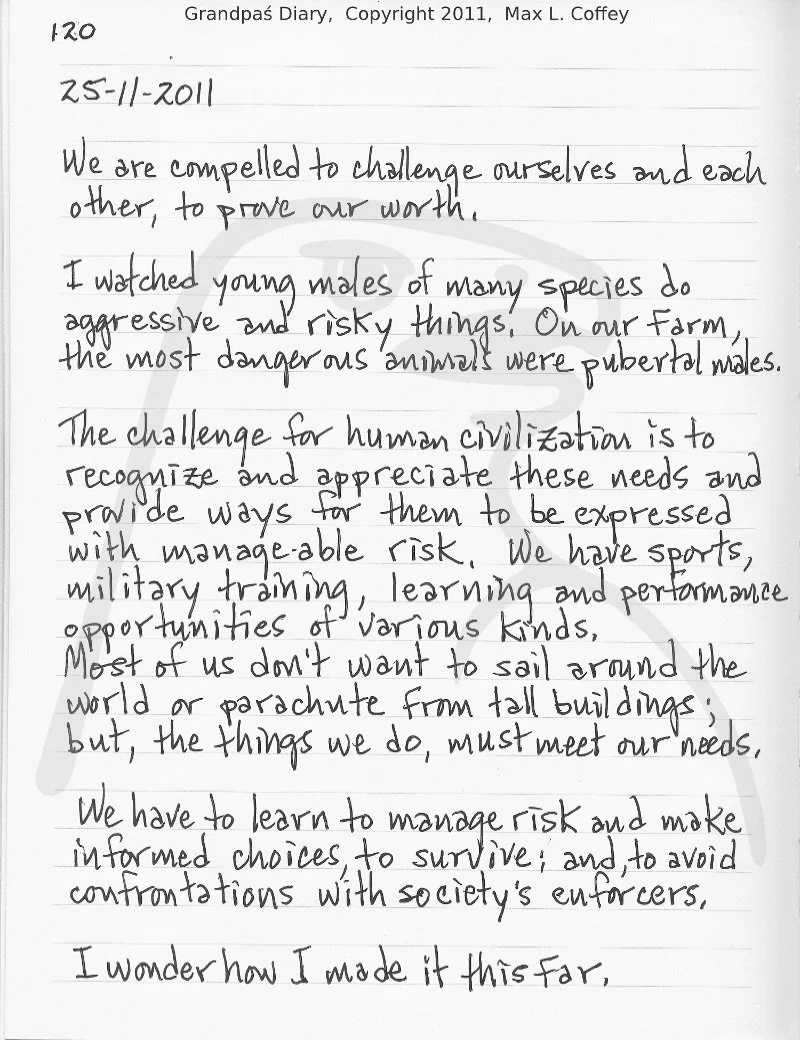 Grandpaś Diary, Copyright 2011, Max L. Coffey
120
25-11-2011
We are compelled to challenge ourselves and each
other, to prove our worth.
I watched young males of many species do
aggressive and risky things. On our farm,
the most dangerous animals were pubertal males.
The challenge for human civilization is to
recognize and appreciate these needs and
provide ways for them to be expressed
with manage-able risk. We have sports,
military training, learning and performance
opportunities of various kinds.
Most of us don't want to sail around the
world or parachute from tall buildings;
but, the things we do, must meet our needs.
We have to learn to manage risk and make
informed choices, to survive; and, to avoid
confrontations with society's enforcers.
I wonder how I made it this far.